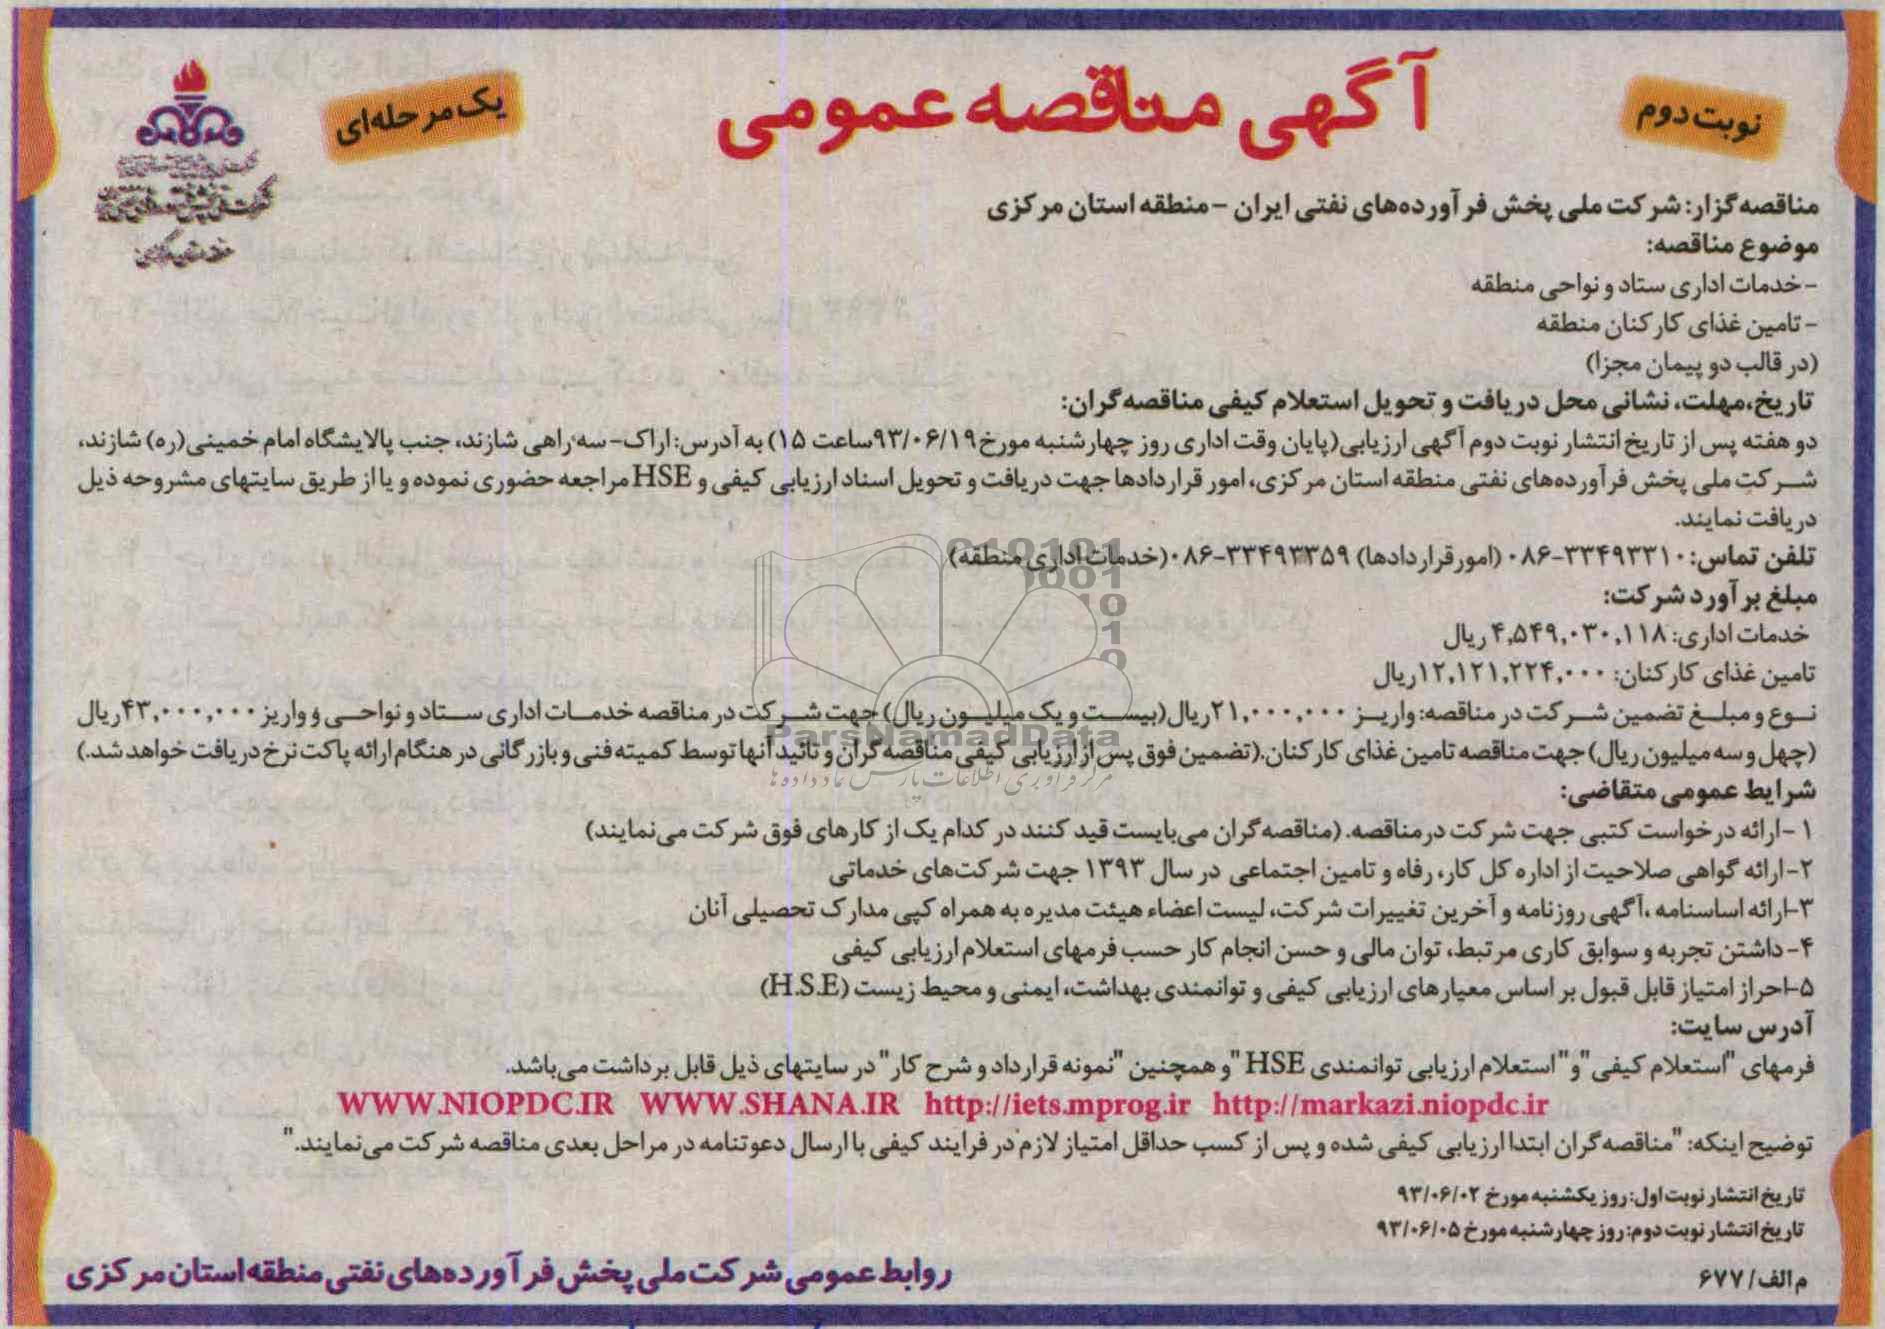 آگهی مناقصه عمومی
نوبت دوم
یک مرحله‌ای
مناقصه‌گزار: شرکت ملی پخش فرآورده‌های نفتی ایران - منطقه استان مرکزی
موضوع مناقصه:
- خدمات اداری ستاد و نواحی منطقه
- تامین غذای کارکنان منطقه
(در قالب دو پیمان مجزا)
تاریخ،مهلت، نشانی محل دریافت و تحویل استعلام کیفی مناقصه‌گران:
دو هفته پس از تاریخ انتشار نوبت دوم آگهی ارزیابی(پایان وقت اداری روز چهارشنبه مورخ ۹۳/۰۶/۱۹ساعت ۱۵) به آدرس: اراک- سه‌راهی شازند، جنب پالایشگاه امام خمینی(ره) شازند،
شرکت ملی پخش فرآورده‌های نفتی منطقه استان مرکزی، امور قراردادها جهت دریافت و تحویل اسناد ارزیابی کیفی و HSE مراجعه حضوری نموده و یا از طریق سایتهای مشروحه ذیل
دریافت نمایند.
تلفن تماس: ۳۳۴۹۳۳۱۰-۰۸۶ (امورقراردادها) ۳۳۴۹۳۳۵۹-۰۸۶ (خدمات اداری منطقه)
مبلغ برآورد شرکت:
خدمات اداری: ۴,۵۴۹,۰۳۰,۱۱۸ ریال
تامین غذای کارکنان: ۱۲,۱۲۱,۲۲۴,۰۰۰ریال
نوع و مبلغ تضمین شرکت در مناقصه: واریز ۲۱,۰۰۰,۰۰۰ریال(بیست و یک میلیون ریال) جهت شرکت در مناقصه خدمات اداری ستاد و نواحی و واریز ۴۳,۰۰۰,۰۰۰ریال
(چهل و سه میلیون ریال) جهت مناقصه تامین غذای کارکنان.(تضمین فوق پس از ارزیابی کیفی مناقصه‌گران و تائید آنها توسط کمیته فنی و بازرگانی در هنگام ارائه پاکت نرخ دریافت خواهد شد.)
ParsNamadData
مرکز فرآوری اطلاعات پارس نماد داده ها
شرایط عمومی متقاضی:
۱-ارائه درخواست کتبی جهت شرکت درمناقصه. (مناقصه‌گران می‌بایست قید کنند در کدام یک از کارهای فوق شرکت می‌نمایند)
۲-ارائه گواهی صلاحیت از اداره کل کار، رفاه و تامین اجتماعی در سال ۱۳۹۳ جهت شرکت‌های خدماتی
۳-ارائه اساسنامه ،آگهی روزنامه و آخرین تغییرات شرکت، لیست اعضاء هیئت مدیره به همراه کپی مدارک تحصیلی آنان
۴-داشتن تجربه و سوابق کاری مرتبط، توان مالی و حسن انجام کار حسب فرمهای استعلام ارزیابی کیفی
۵-احراز امتیاز قابل قبول بر اساس معیارهای ارزیابی کیفی و توانمندی بهداشت، ایمنی و محیط زیست (H.S.E)
آدرس سایت:
فرمهای "استعلام کیفی "و" استعلام ارزیابی توانمندی HSE "و همچنین "نمونه قرارداد و شرح کار" در سایتهای ذیل قابل برداشت می‌باشد.
WWW.NIOPDC.IR WWW.SHANA.IR http://iets.mprog.ir http://markazi.niopdc.ir
توضیح اینکه: "مناقصه‌گران ابتدا ارزیابی کیفی شده و پس از کسب حداقل امتیاز لازم در فرایند کیفی با ارسال دعوتنامه در مراحل بعدی مناقصه شرکت می‌نمایند."
تاریخ انتشار نوبت اول: روز یکشنبه مورخ ۹۳/۰۶/۰۲
تاریخ انتشار نوبت دوم: روز چهارشنبه مورخ ۹۳/۰۶/۰۵
م الف/۶۷۷
روابط عمومی شرکت ملی پخش فرآورده‌های نفتی منطقه استان مرکزی